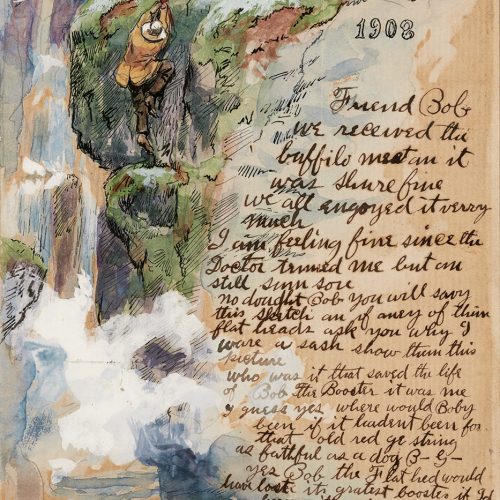 1908
Friend Bob
we received the
buffilo meet an it
was shure fine
we all engoyed it verry
much
I am feeling fine since the
Doctor trimed me but am
still sum sore
no dought Bob you will savy
this sketch an if aney of them
flat heads ask you why I
ware a sash show them this
picture
who was it that saved the life
of Bob the Booster it was me
I guess yes where would Boby
been if it hadent been for
that old red ge string
as faithful as a dog B-G-
yes Bob the Flat hed would
have lost its gratest booster if